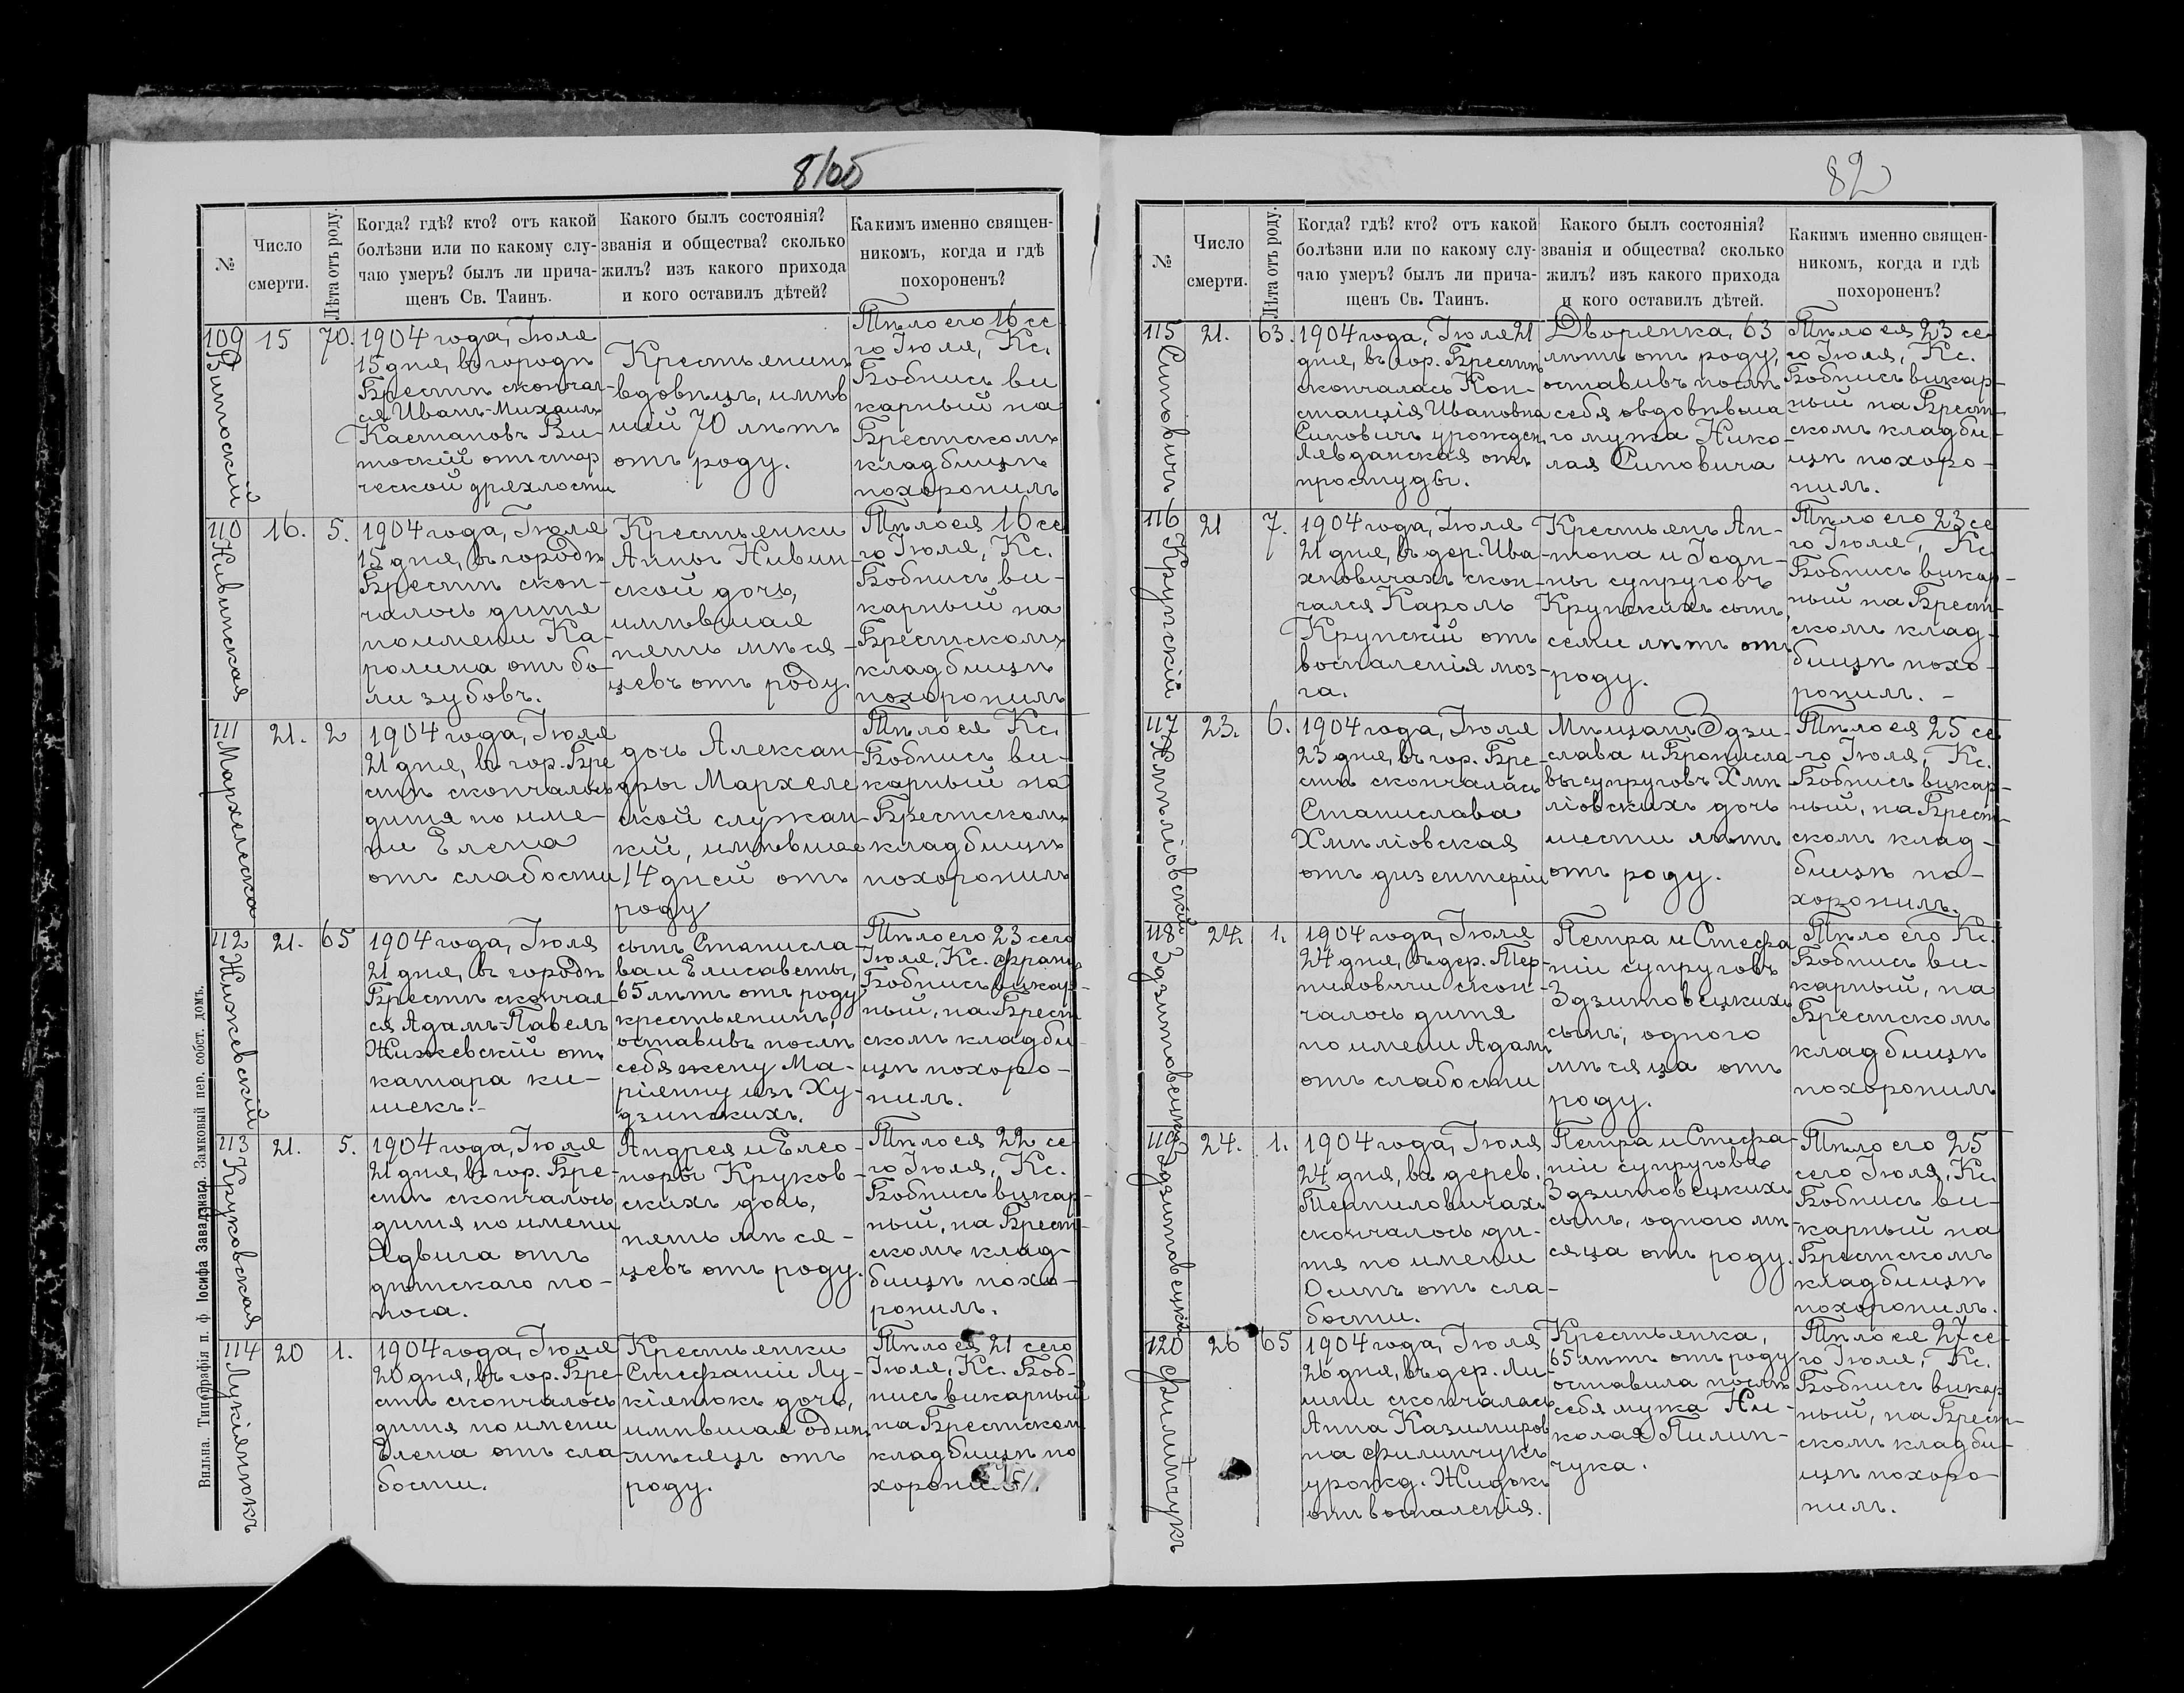 8100
№
Число
смерти.
Лѣта отъ роду.
Когда? гдѣ? кто? отъ какой
болѣзни или по какому слу-
чаю умеръ? былъ ли прича-
щенъ Св. Таинъ.
Какого былъ состоянія?
званія и общества? сколько
жилъ? изъ какого прихода
и кого оставилъ дѣтей?
Какимъ именно священ-
никомъ, когда и гдѣ
похороненъ?
109
Витоский
15
70.
1904 года, Іюля
15 дня, въ городѣ
Брестѣ скончал-
ся Иванъ-Михаилъ
Каетановъ Ви-
тоскій отъ стар
ческой дряхлости
Крестьянинъ
вдовецъ, имѣв
шій 70 лѣтъ
отъ роду.
Тѣло его 16 се
го Іюля, Кс.
Бобнисъ ви
карный на
Брестскомъ
кладбищѣ
похоронилъ
110
Нивинская
16.
5.
1904 года, Іюля
15 дня, въ городѣ
Брестѣ скон-
чалось дитя
по имени Ка-
ролина отъ бо-
ли зубовъ.
Крестьянки
Анны Нивин-
ской дочь,
имѣвшая
пять мѣся-
цевъ отъ роду.
Тѣло ея 16 се
го Іюля, Кс.
Бобнисъ ви-
карный на
Брестскомъ
кладбищѣ
похоронилъ
111
Мархелеска
21.
2
1904 года, Іюля
21 дня, въ гор. Бре
стѣ скончалось
дитя по име-
ни Елена
отъ слабости
дочь Алексан-
дры Мархеле
ской служан-
кій, имѣвшае
14 дней отъ
роду
Тѣло ея Кс.
Бобнисъ ви-
карный на
Брестскомъ
кладбищѣ
похоронилъ
112
Жижевскій
21.
65
1904 года, Іюля
21 дня, въ городѣ
Брестѣ скончал-
ся Адамъ-Павелъ
Жижевскій отъ
катара ки-
шекъ.-
сынъ Станисла-
ва и Елисаветы,
65 лѣтъ отъ роду
крестьянинъ,
оставивъ послѣ
себя жену Ма-
ріянну изъ Ху-
дзинскихъ.
Тѣло его 23 сего
Іюля, Кс. Франц
Бобнисъ викар-
ный, на Брест
скомъ кладби-
щѣ похоро-
нилъ.
113
Круковская
21.
5.
1904 года, Іюля
21 дня, въ гор. Бре-
стѣ скончалось
дитя по имени
Ядвига отъ
дѣтскаго по-
носа.
Андрея и Елео-
норы Круков-
скихъ дочь,
пять мѣся-
цевъ отъ роду.
Тѣло ея 22 се-
го Іюля, Кс.
Бобнисъ викар-
ный, на Брест-
скомъ клад-
бищѣ похо-
ронилъ.
114
Лукіянюкъ
20
1.
1904 года, Іюля
20 дня, въ гор. Бре-
стѣ скончалось
дитя по имени
Елена отъ сла
бости.
Крестьянки
Стефаніи Лу-
кіянюкъ дочь,
имѣвшая одинъ
мѣсяцъ отъ
роду.
Тѣло ея 21 сего
Іюля, Кс. Боб-
нисъ викарный
на Брестском
кладбищѣ по
Вильна. Типографія п. ф. Іосифа Завадзкаго. Замковый пер. собст. домъ.
82
№
Число
смерти.
Лѣта отъ роду.
Когда? гдѣ? кто? отъ какой
болѣзни или по какому слу-
чаю умеръ? былъ ли прича-
щенъ Св. Таинъ.
Какого былъ состоянія?
званія и общества? сколько
жилъ? изъ какого прихода
и кого оставилъ дѣтей.
Какимъ именно священ-
никомъ, когда и гдѣ
похороненъ?
115
Синовичъ
21.
63.
1904 года, Іюля 21
дня, въ гор. Брестѣ
скончалась Кон-
станція Ивановна
Синовичъ урожден.
Левданская отъ
простуды.
Дворянка, 63
лѣтъ отъ роду,
оставивъ послѣ
себя овдовѣвша
го мужа Нико-
лая Синовича
Тѣло ея 23 се-
го Іюля, Кс.
Бобнисъ викар-
ный на Брест-
скомъ кладби-
щѣ похоро-
нилъ.
116
Крупскій
21
7.
1904 года, Іюля
21 дня, въ дер. Ива
хновичахъ скон-
чался Кароль
Крупскій отъ
воспаленія моз-
га.
Крестьянъ Ан-
тона и Іоан-
ны супруговъ
Крупскихъ сынъ,
семи лѣтъ отъ
роду.
Тѣло его 23 се
го Іюля, Кс
Бобнисъ викар-
ный на Брест-
скомъ клад-
бищѣ похо-
ронилъ. -
117
Хмѣліовскій
23.
6.
1904 года, Іюля
23 дня, въ гор. Бре-
стѣ скончалась
Станислава
Хмѣліовская
отъ дизентеріи
Мѣщанъ Здзи-
слава и Брониcла
вы супруговъ Хмѣ
ліовскихъ дочь
шести лѣтъ
отъ роду.
Тѣло ея 25 се
го Іюля, Кс.
Бобнисъ викар-
ный, на Брест-
скомъ клад-
бищѣ по-
хоронилъ.
118
Здзитовецкій
24.
1.
1904 года, Іюля
24 дня, въ дер. Тер-
пиловичи скон-
чалось дитя
по имени Адамъ
отъ слабости
Петра и Стефа
ніи супруговъ
Здзитовецкихъ
сынъ, одного
мѣсяца отъ
роду.
Тѣло его Кс.
Бобнисъ ви-
карный, на
Брестскомъ
кладбищѣ
похоронилъ
119
Здзитовецкій
24.
1.
1904 года, Іюля
24 дня, въ дерев.
Терпиловичахъ
скончалось ди-
тя по имени
Осипъ отъ сла-
бости.
Петра и Стефа-
ніи супруговъ
Здзитовецкихъ
сынъ, одного мѣ-
сяца отъ роду.
Тѣло его 25
сего Іюля, Кс.
Бобнисъ ви-
карный на
Брестскомъ
кладбищѣ
похоронилъ.
120
Филипчукъ
26
65
1904 года, Іюля
26 дня, въ дер. Ли
шни скончалась
Анна Казимиров
на Филипчукъ
урожд. Жидокъ
отъ воспаленія.
Крестьянка,
65 лѣтъ отъ роду
оставила послѣ
себя мужа Ни-
колая Пилип-
чука.
Тѣло ея 27 се-
го Іюля, Кс.
Бобнисъ викар
ный, на Брест-
скомъ кладби-
щѣ похоро-
нилъ.